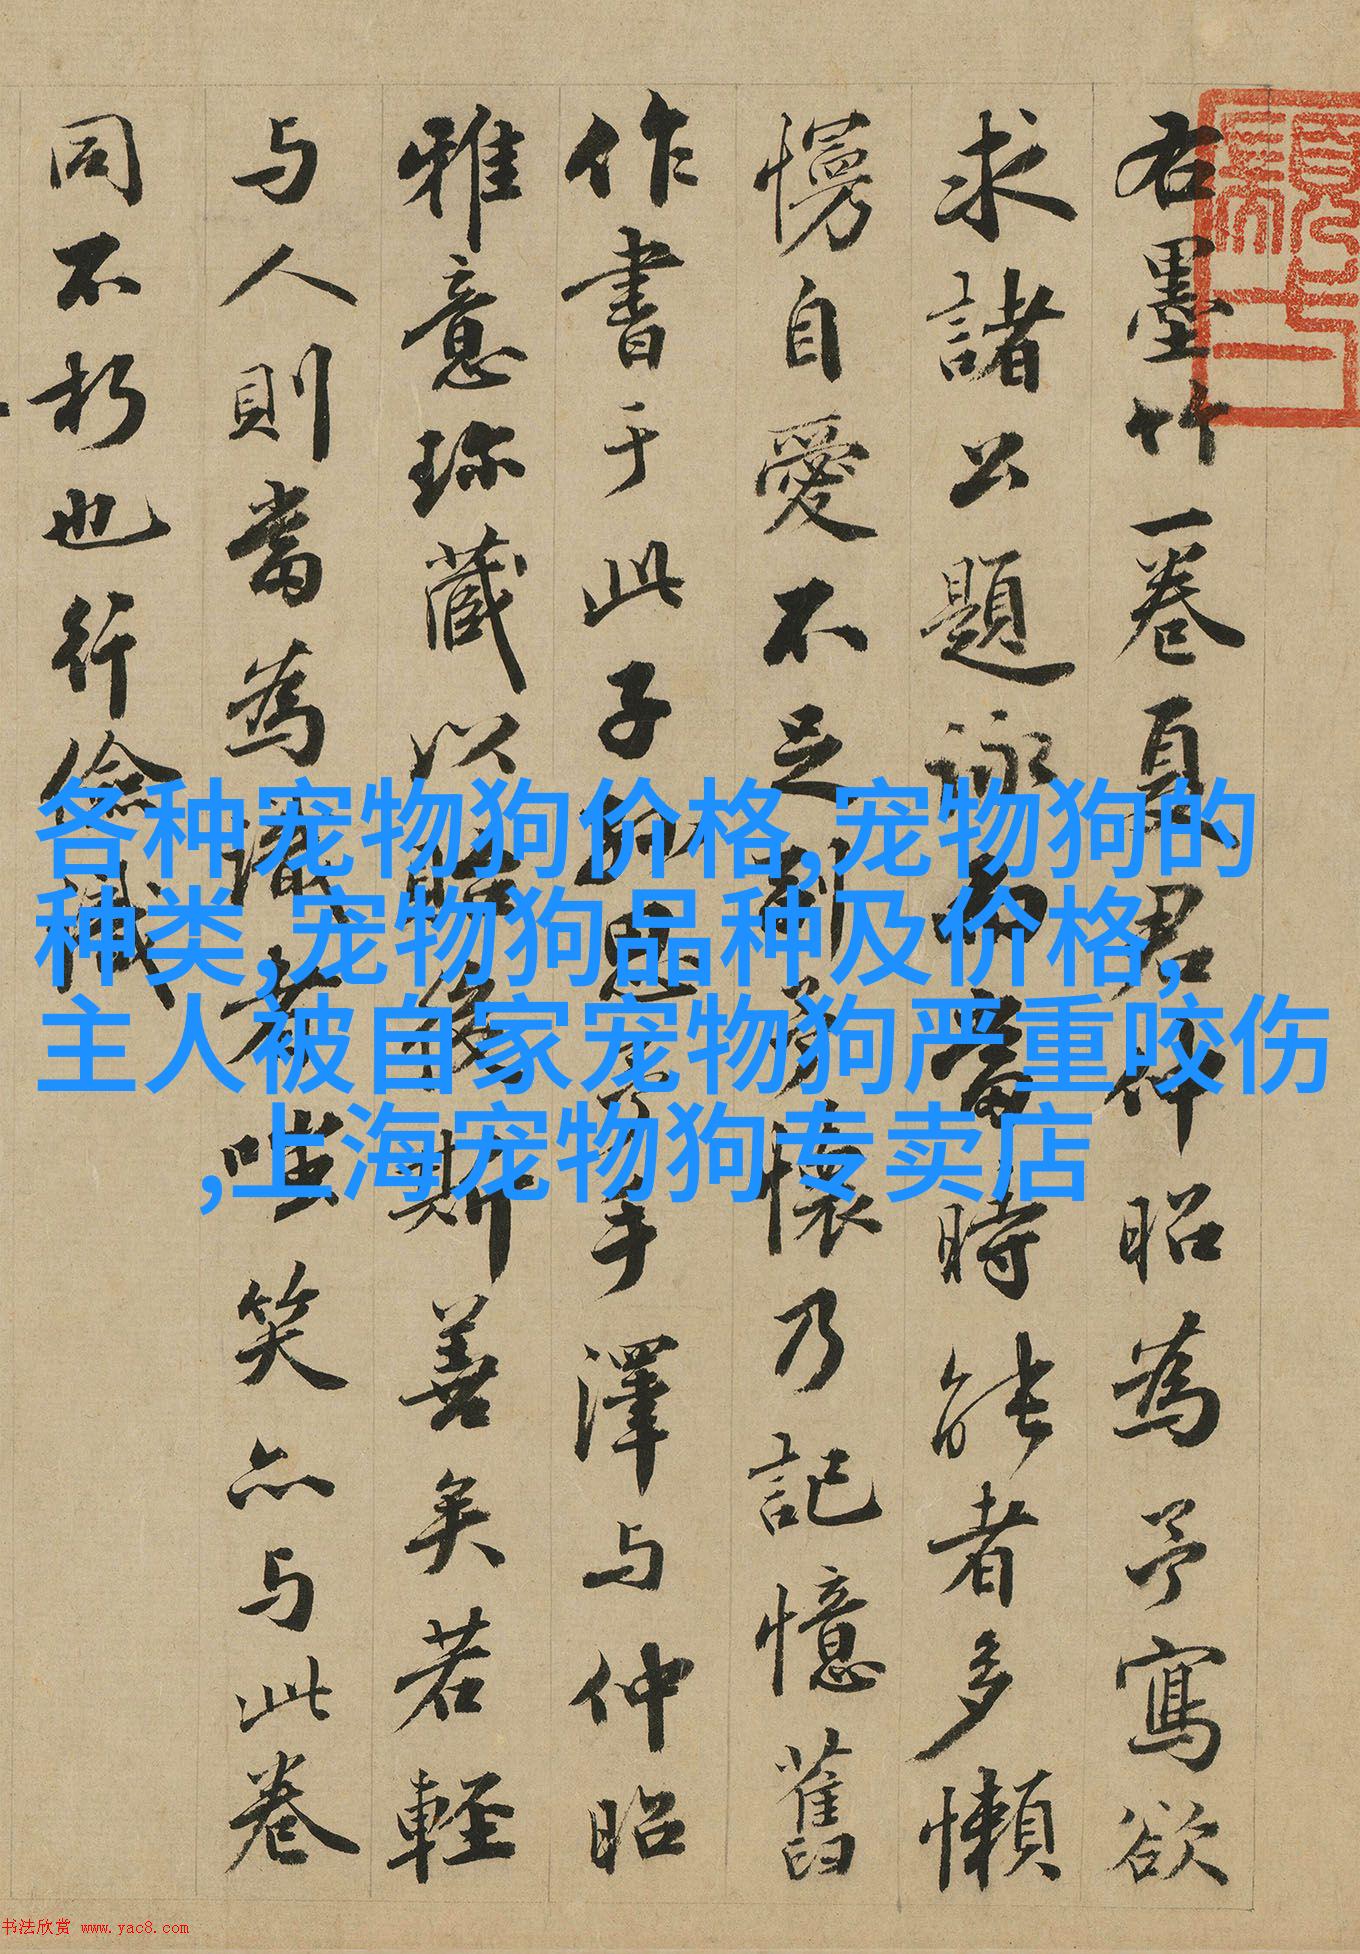 右墨竹一卷夏君仲昭為予寫欲
求諸公題詠而當時能者多懶
慢自愛不足懷乃記憶舊
作書于此子思手澤与仲昭
雅意珍藏以斯善矣若輕
与人則當為識者嗤笑亦与此卷
同不朽也行儉識
各种宠物狗价格,宠物狗的
种类,宠物狗品种及价格,
主人被自家宠物狗严重咬伤
,上海宠物狗专卖店
书法欣赏 www.yac8.com